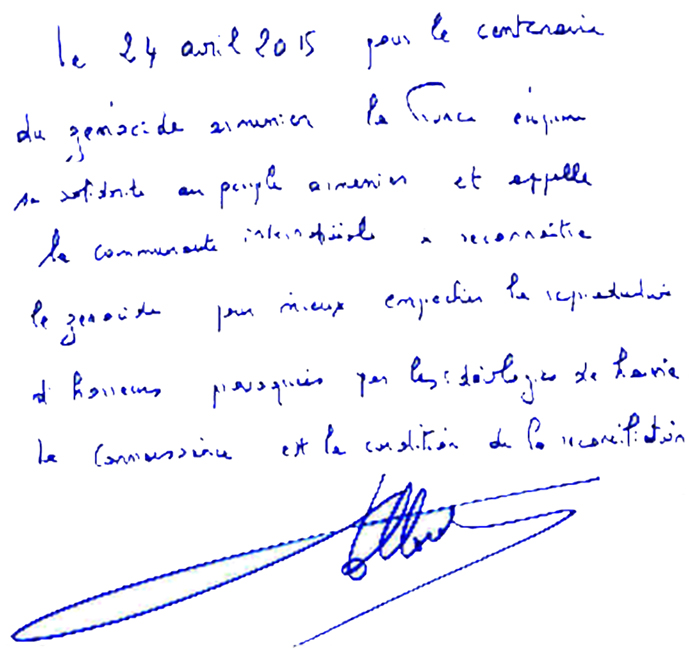 le 24 avril 2015 pour le centenaire
du génocide arménien la France exprime
sa solidarité au peuple arménien et appelle
la communauté internationale a reconnaître
le génocide pour mieux empecher la reproduction
d'horreurs provoquées par les idéologies de haine
La connaissance est la condition de la réconciliation